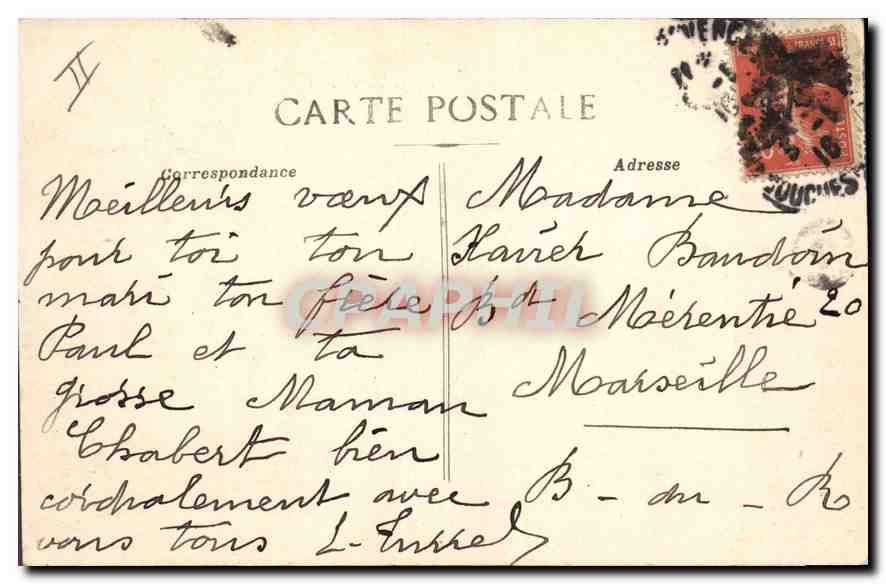 II
CARTE POSTALE
Correspondance
Meilleurs vœux
pour toi ton
mari ton frère
Paul et ta
grosse Maman
Chabert bien
cordialement avec
vous tous L. Turrel
Adresse
Madame
Xavier Baudoin
Bd Mérentié 20
Marseille
B - du - R
CPAPHIL
POSTE